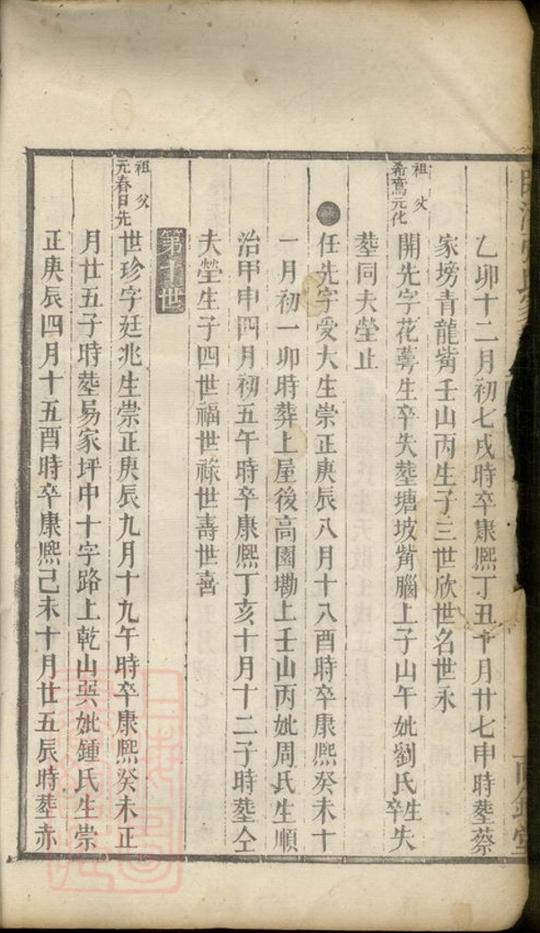 乙卯十二月初七戌時卒康熙丁丑十月廿七申時塟蔡
家塝青龍觜壬山丙生子三世欣世名世永
祖父
希鸞元化
開先字花蕚生卒失塟塘坡觜腦上子山午妣劉氏生卒失
塟同夫塋止
任先字受大生崇正庚辰八月十八酉時卒康熙癸未十
一月初一卯時葬上屋後高園墈上壬山丙妣周氏生順
治甲申四月初五午時卒康熙丁亥十月十二子時塟仝
夫塋生子四世福世祿世壽世喜
第十世
祖父
元春日先
世珍字廷兆生崇正庚辰九月十九午時卒康熙癸未正
月廿五子時塟易家坪中十字路上乾山巽妣鍾氏生崇
正庚辰四月十五酉時卒康熙己未十月廿五辰時塟赤